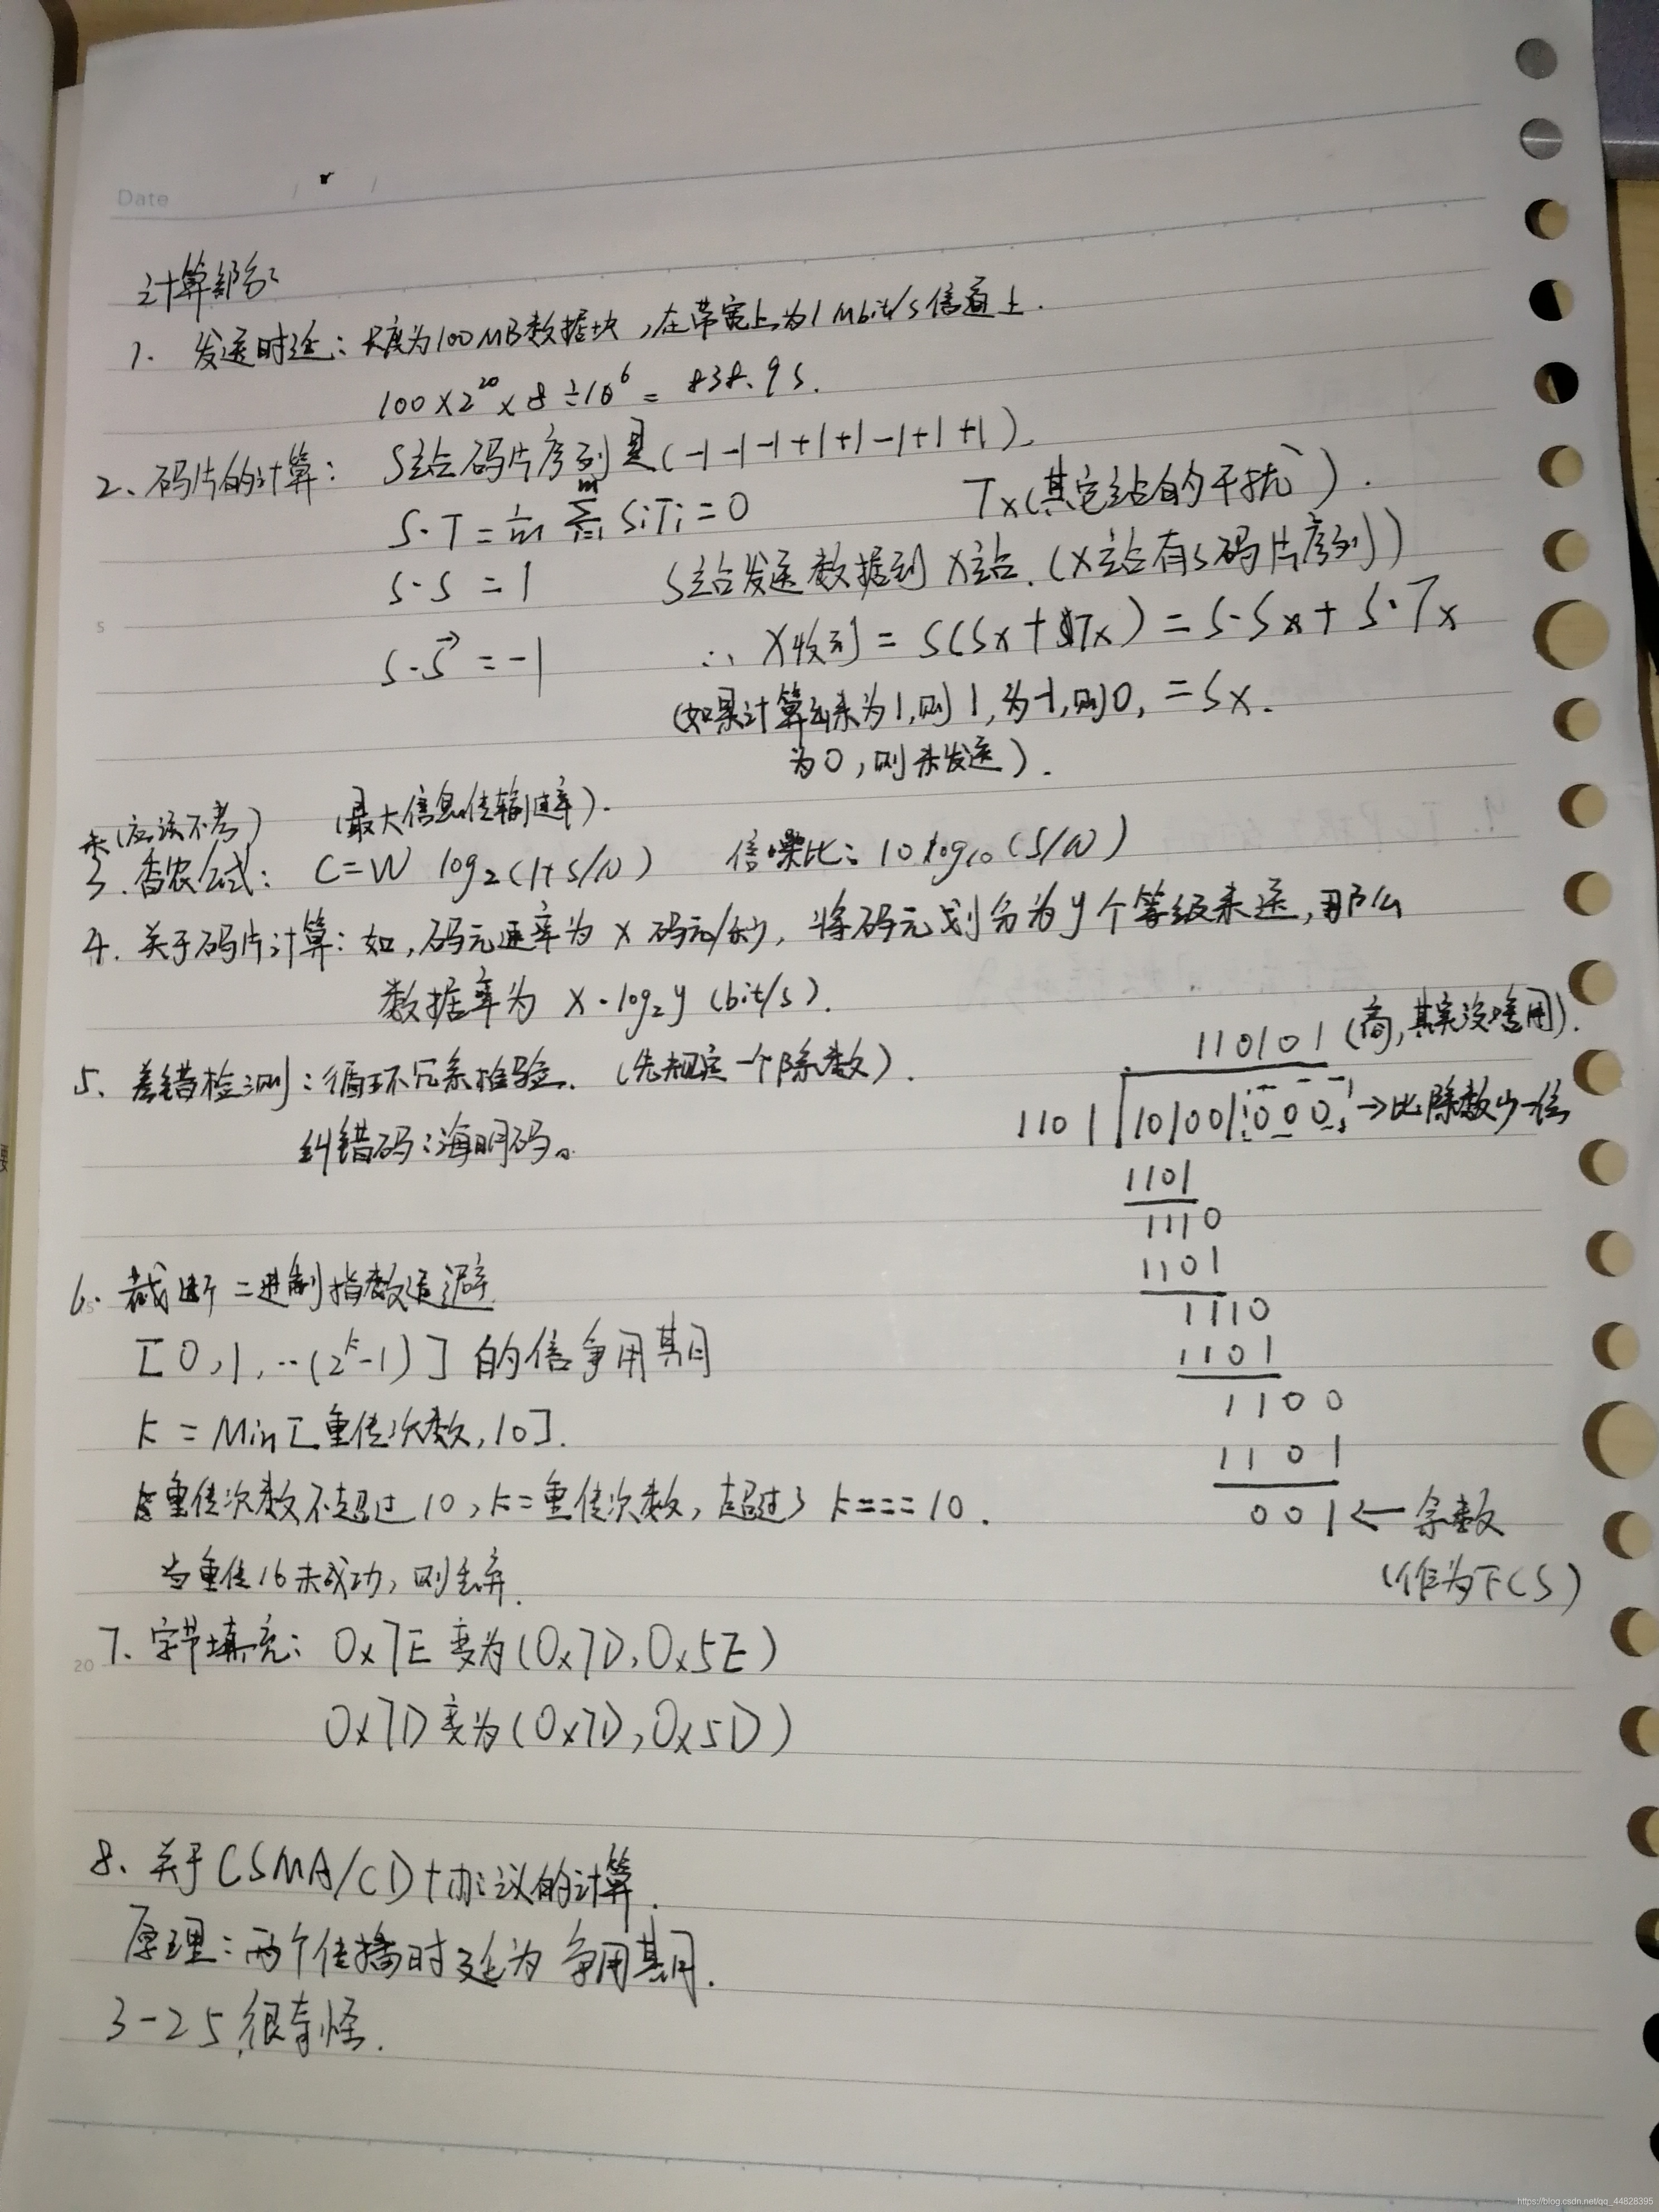 Date / /
计算部分:
1. 发送时延: 长度为100MB数据块,在带宽上为1Mbit/s信道上.
100×2^20×8÷10^6=838.9s.
2、码片的计算: S站码片序列是(-1-1-1+1+1-1+1+1).
S·T=1/m ∑(i=1→m) SiTi=0 Tx(其它站的干扰).
S·S=1 S站发送数据到X站.(X站有S码片序列)
S·S⃗=-1 ∴X收到=S(Sx+Tx)=S·Sx+S·Tx
(如果计算出来为1,则1,为-1,则0, =Sx.
为0,则未发送).
(应该不考) (最大信息传输速率).
3.香农公式: C=W log₂(1+S/N) 信噪比: 10log₁₀(S/N)
4.关于码片计算:如,码元速率为x码元/秒,将码元划分为y个等级来送,那么
数据率为 x·log₂y (bit/s).
5、差错检测:循环冗余检验.(先规定一个除数).
纠错码:海明码。
110101(商,其实没啥用).
1101 101001000→比除数少一位
1101
1110
1101
1110
1101
1100
1101
001←余数
(作为FCS)
6.截断二进制指数退避
[0,1,··(2^k-1)]的倍争用期
k=Min[重传次数,10].
重传次数不超过10,k=重传次数,超过了k===10.
当重传16未成功,则丢弃.
7、字节填充: 0x7E变为(0x7D,0x5E)
0x7D变为(0x7D,0x5D)
8、关于CSMA/CD协议的计算.
原理:两个传播时延为争用期.
3-25,很奇怪.
https://blog.csdn.net/qq_44828395